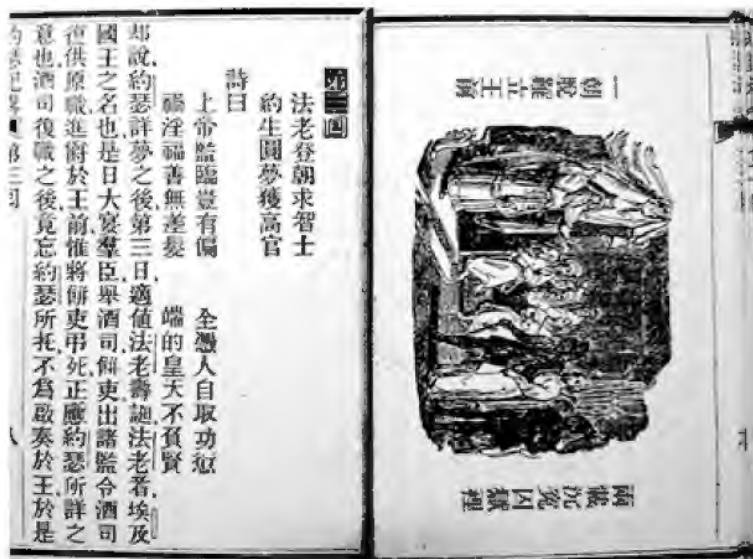 兩載沉冤囚獄裡
一朝脫離立王前
第三回
法老登朝求智士
約生圓夢獲高官
詩曰
上帝監臨豈有偏　全憑人自取功愆
禍淫福善無差髮　端的皇天不負賢
却說約瑟詳夢之後第三日適値法老壽誕法老者埃及
國王之名也是日大宴羣臣舉酒司餅吏出諸監令酒司
復供原職進爵於王前惟將餅吏弔死正應約瑟所詳之
意也酒司復職之後竟忘約瑟所托不爲啟奏於王於是
約瑟紀畧　第三回　八